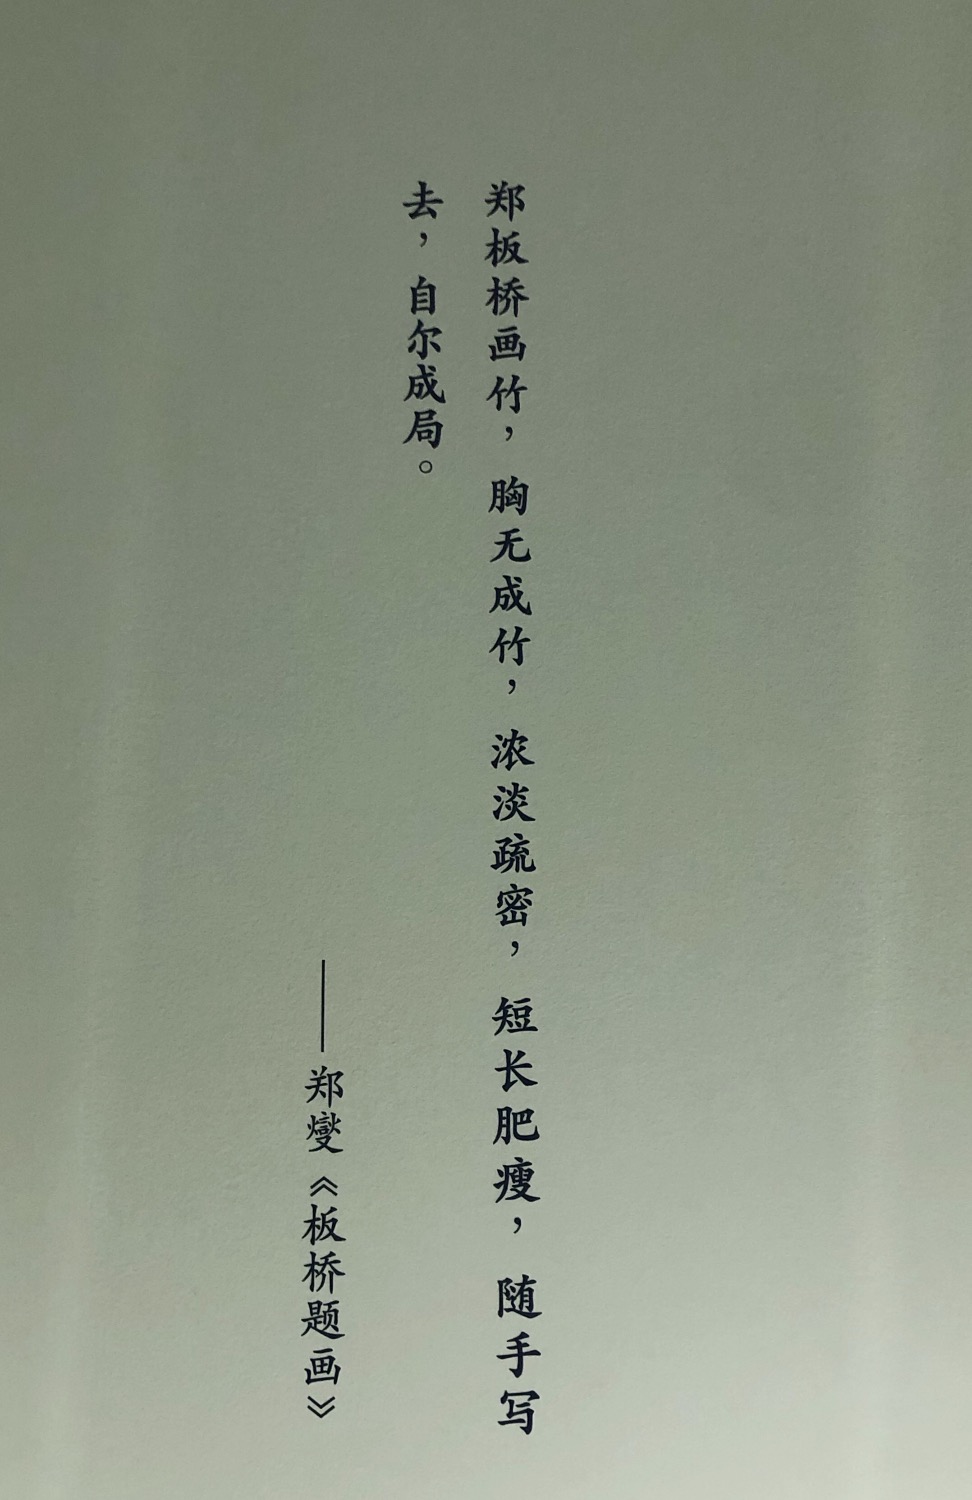 郑板桥画竹，胸无成竹，浓淡疏密，短长肥瘦，随手写
去，自尔成局。
——郑燮《板桥题画》